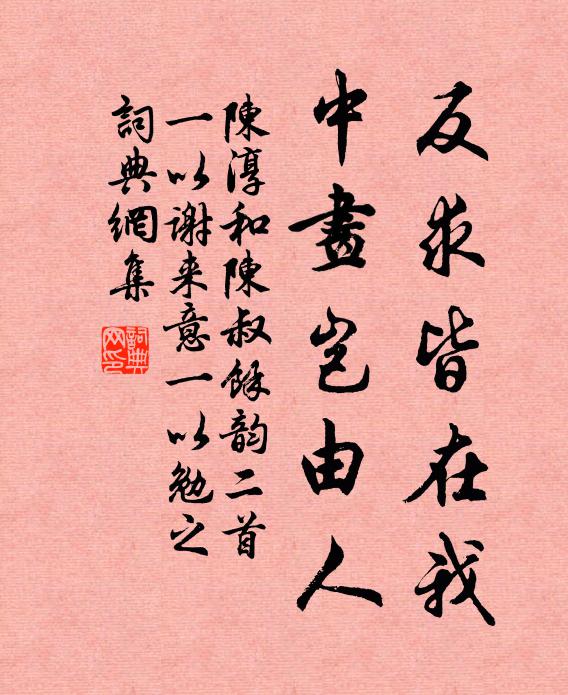 反求皆在我
中畫豈由人
陳淳和陳叔餘韵二首
一以谢来意一以勉之
詞典網集
詞典网印